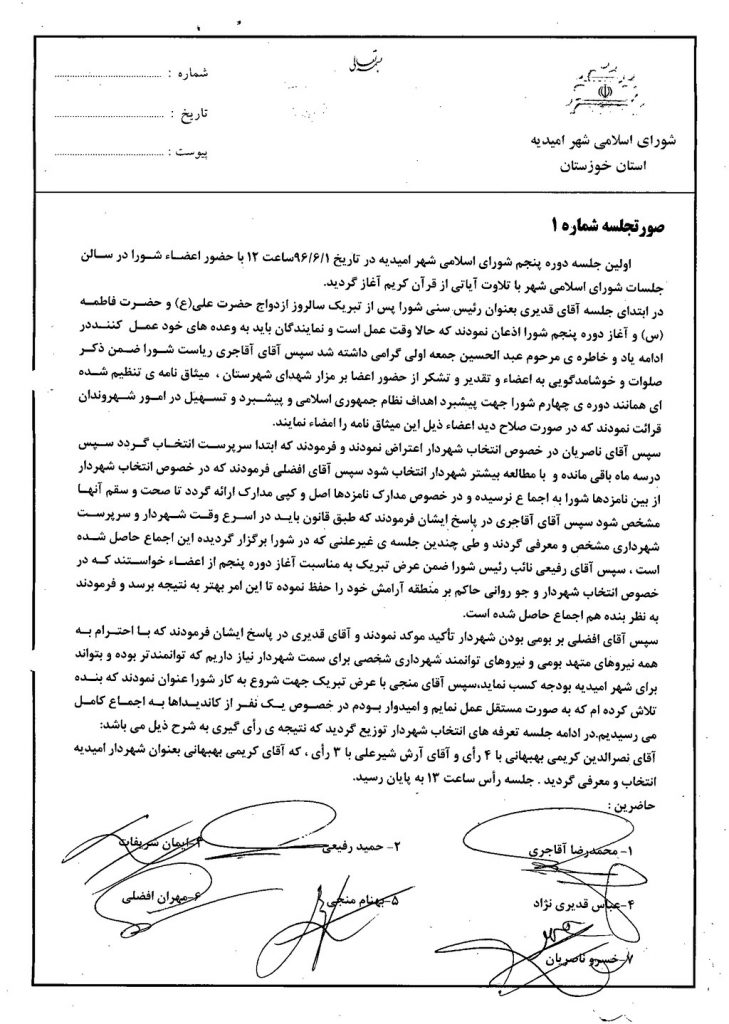 بسمه تعالی
شماره :
تاریخ :
پیوست :
شورای اسلامی شهر امیدیه
استان خوزستان
صورتجلسه شماره ۱
اولین جلسه دوره پنجم شورای اسلامی شهر امیدیه در تاریخ ۹۶/۶/۱ساعت ۱۲ با حضور اعضاء شورا در سالن
جلسات شورای اسلامی شهر با تلاوت آیاتی از قرآن کریم آغاز گردید.
در ابتدای جلسه آقای قدیری بعنوان رئیس سنی شورا پس از تبریک سالروز ازدواج حضرت علی(ع) و حضرت فاطمه
(س) و آغاز دوره پنجم شورا اذعان نمودند که حالا وقت عمل است و نمایندگان باید به وعده های خود عمل کننددر
ادامه یاد و خاطره ی مرحوم عبد الحسین جمعه اولی گرامی داشته شد سپس آقای آقاجری ریاست شورا ضمن ذکر
صلوات و خوشامدگویی به اعضاء و تقدیر و تشکر از حضور اعضا بر مزار شهدای شهرستان ، میثاق نامه ی تنظیم شده
ای همانند دوره ی چهارم شورا جهت پیشبرد اهداف نظام جمهوری اسلامی و پیشبرد و تسهیل در امور شهروندان
قرائت نمودند که در صورت صلاح دید اعضاء ذیل این میثاق نامه را امضاء نمایند.
سپس آقای ناصریان در خصوص انتخاب شهردار اعتراض نمودند و فرمودند که ابتدا سرپرست انتخاب گردد سپس
درسه ماه باقی مانده و با مطالعه بیشتر شهردار انتخاب شود سپس آقای افضلی فرمودند که در خصوص انتخاب شهردار
از بین نامزدها شورا به اجما ع نرسیده و در خصوص مدارک نامزدها اصل و کپی مدارک ارائه گردد تا صحت و سقم آنها
مشخص شود سپس آقای آقاجری در پاسخ ایشان فرمودند که طبق قانون باید در اسرع وقت شهردار و سرپرست
شهرداری مشخص و معرفی گردند و طی چندین جلسه ی غیرعلنی که در شورا برگزار گردیده این اجماع حاصل شده
است ، سپس آقای رفیعی نائب رئیس شورا ضمن عرض تبریک به مناسبت آغاز دوره پنجم از اعضاء خواستند که در
خصوص انتخاب شهردار و جو روانی حاکم بر منطقه آرامش خود را حفظ نموده تا این امر بهتر به نتیجه برسد و فرمودند
به نظر بنده هم اجماع حاصل شده است.
سپس آقای افضلی بر بومی بودن شهردار تأکید موکد نمودند و آقای قدیری در پاسخ ایشان فرمودند که با احترام به
همه نیروهای متهد بومی و نیروهای توانمند شهرداری شخصی برای سمت شهردار نیاز داریم که توانمندتر بوده و بتواند
برای شهر امیدیه بودجه کسب نماید،سپس آقای منجی با عرض تبریک جهت شروع به کار شورا عنوان نمودند که بنده
تلاش کرده ام که به صورت مستقل عمل نمایم و امیدوار بودم در خصوص یک نفر از کاندیداها به اجماع کامل
می رسیدیم.در ادامه جلسه تعرفه های انتخاب شهردار توزیع گردید که نتیجه ی رأی گیری به شرح ذیل می باشد:
آقای نصرالدین کریمی بهبهانی با ۴ رأی و آقای آرش شیرعلی با ۳ رأی ، که آقای کریمی بهبهانی بعنوان شهردار امیدیه
انتخاب و معرفی گردید . جلسه رأس ساعت ۱۳ به پایان رسید.
حاضرین :
۱- محمدرضا آقاجری ۲- حمید رفیعی ۳-ایمان شریفات
۴-عباس قدیری نژاد ۵-بهنام منجی ۶-مهران افضلی
۷-خسرو ناصریان